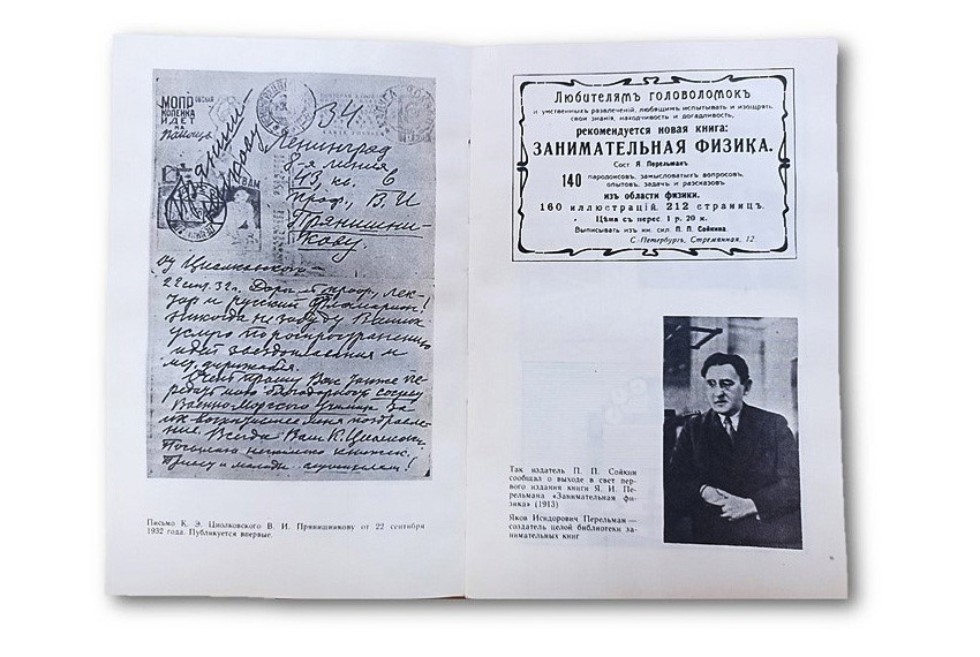 МОПР
КОПЕЙКА
ИДЕТ
НА
ПОМОЩЬ
34.
Ленинград
8-я линия
43, кв. 6
проф. В. И
Прянишни-
кову.
от Циолковского
22 сент. 32 г. Дорогой проф., лек-
тор и русский Фламарион!
Никогда не забуду Ваших
услуг по распространению
идей звездоплавания и
Очень прошу Вас также пе-
редать мою благодарность
Военно-Морского училища за
их меня поздравле-
ние. Всегда Ваш К. Циолковский
Посылаю несколько книжек.
Привет и молодым слушателям!
Письмо К. Э. Циолковского В. И. Прянишникову от 22 сентября
1932 года. Публикуется впервые.
Любителямъ головоломокъ
и умственныхъ развлеченій, любящимъ испытывать и изощрять
свои знанія, находчивость и догадливость,
рекомендуется новая книга:
ЗАНИМАТЕЛЬНАЯ ФИЗИКА.
Сост Я Перельманъ
140 парадоксовъ, замысловатыхъ вопросовъ,
опытовъ, задачъ и разсказовъ
изъ области физики.
160 иллюстрацій. 212 страницъ.
Цѣна съ перес. 1 р. 20 к.
Выписывать изъ кн. скл. П. П. Сойкина
С.-Петербургъ, Стремянная, 12.
Так издатель П. П. Сойкин
сообщал о выходе в свет пер-
вого издания книги Я. И. Пе-
рельмана «Занимательная фи-
зика» (1913)
Яков Исидорович Перельман —
создатель целой библиотеки за-
нимательных книг